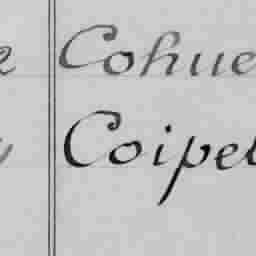 e Cohue
Coipel